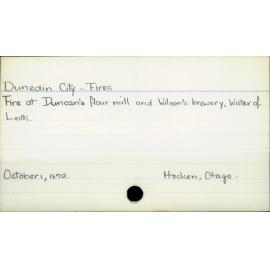 Dunedin City - Fires
Fire at Duncan's flour mill and Wilson's brewery, Water of
Leith.
October 1, 1872.
Hocken, Otago.